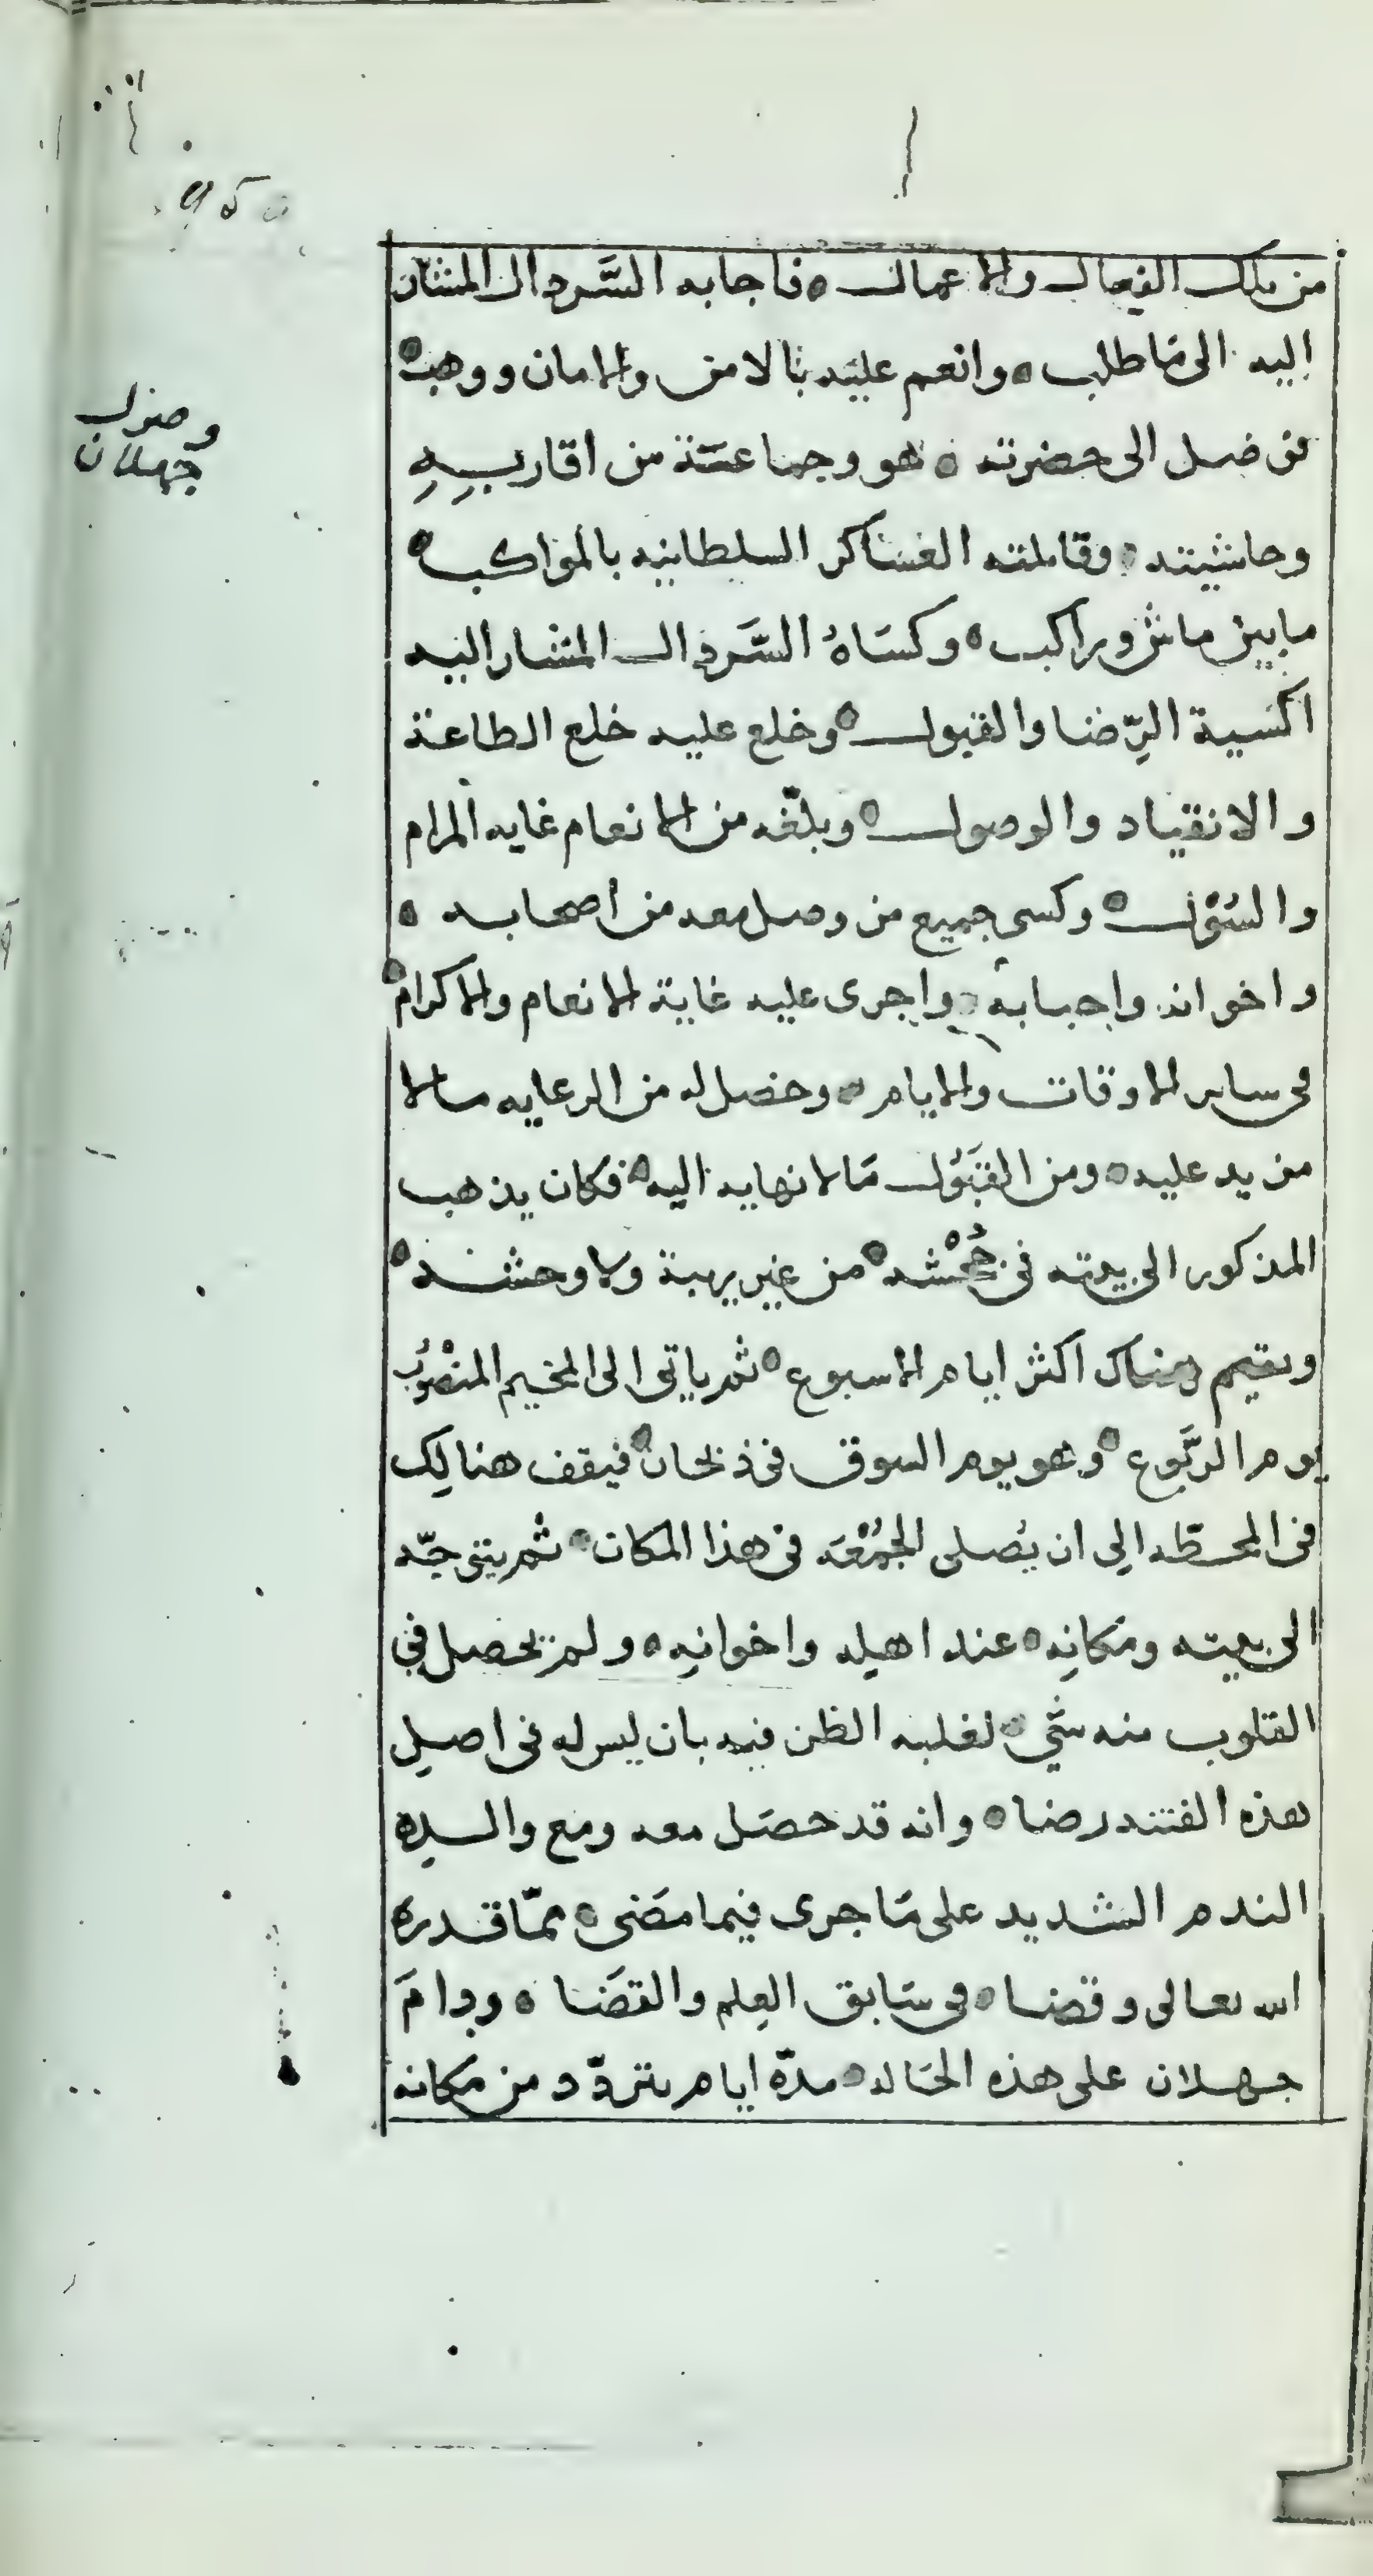 من تلك الفعال والاعمال فاجابه السَّردال المشار
اليه الى مَا طلب وانعم عليه بالامن والامان ووهب
فوصل الى حضرته هو وجماعَة من اقاربِهِ
وحاشيته وقابلته العسَاكر السلطانيه بالموَاكب
مابين ماش وراكب وكسَاهُ السَّردال المشار اليه
اكسية الرِّضا والقبول وخلع عليه خلع الطاعة
والانقياد والوصول وبلّغه من الانعام غايه المرام
والسُوْل وكسى جميع من وصل معه من أصحابه
واخوانه واحبابه واجرى عليه غاية الانعام والاكرام
فى ساير الاوقات والايام وحصل له من الرعايه ما لا
مزيد عليه ومن القبَوُل مَا لا نهايه اليه فكان يذهب
المذكور الى بيته فى من غير رهبة ولا وحشه
ويقيم هناك اكثر ايام الاسبوع ثم ياتى الى المخيم المنصْوُب
يوم الرَّبُوع وهو يوم السوق فى ذيحان فيقف هنالِك
فى المحطّه الِى ان يُصلى الجمُعْه فى هذا المكان ثم يتوجّه
الى بيته ومَكانِه عند اهلِه واخوانِه ولم يحصل فى
القلوب منه شي لغلبه الظن فيه بان ليس له فى اصل
هذه الفتنه رضا وانه قد حصَل معه ومع والده
الندم الشديد على مَا جرى فيما مَضى ممّا قدره
الله تعالى وقضا فى سَابق العِلم والقضَا ودامَ
جهلان على هذه الحَاله مدّة ايام يتردّد من مكانه
وصول
جهلان